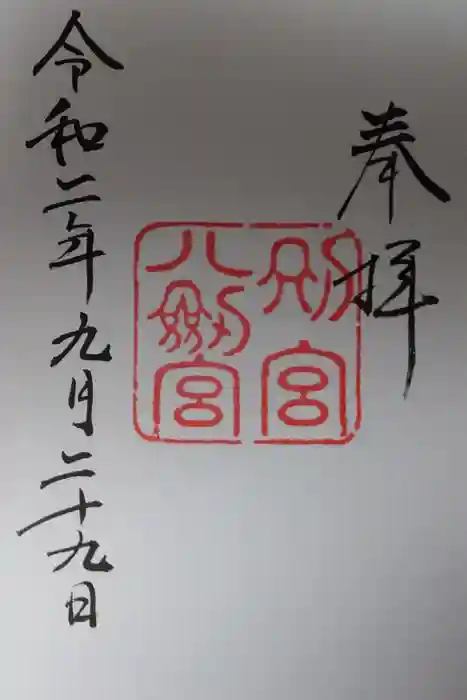 奉拝
別宮
八劔宮
令和二年九月二十九日